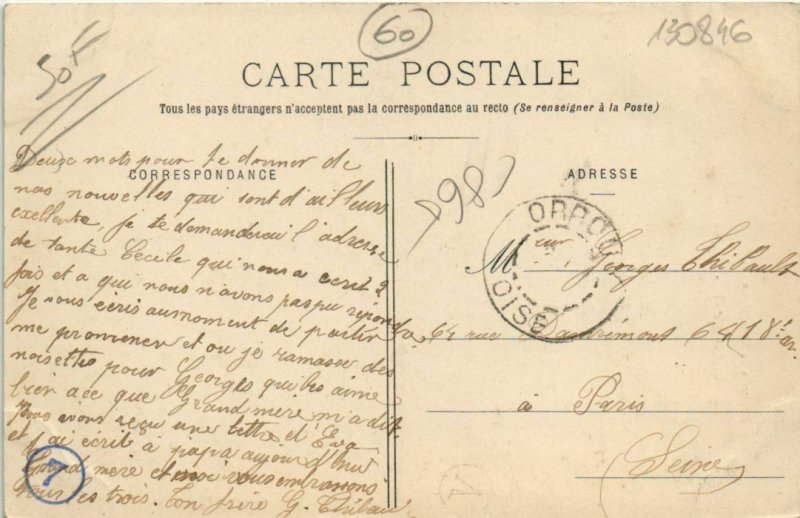 60
130846
50f
CARTE POSTALE
Tous les pays étrangers n'acceptent pas la correspondance au recto (Se renseigner à la Poste)
CORRESPONDANCE
Deux mots pour te donner de
nos nouvelles qui sont d'ailleurs
exellente, je te demanderai l'adresse
de tante Cecile qui nous a ecrit 2
fois et a qui nous n'avons pas pu répondre,
Je vous écris au moment de partir
me promener et ou je ramasse des
noisettes pour Georges qui les aime
bien a ce que Grand mère m'a dit.
Nous avons reçu une lettre d'Eva
et j'ai écrit à papa aujourd'hui
Grand mère et moi vous embrassons
tous les trois. Ton frère G. Thibau
7
ADRESSE
p98
ORRO
OISE
Mr Georges Thibault
64 rue 64 18e ar.
à Paris
Seine